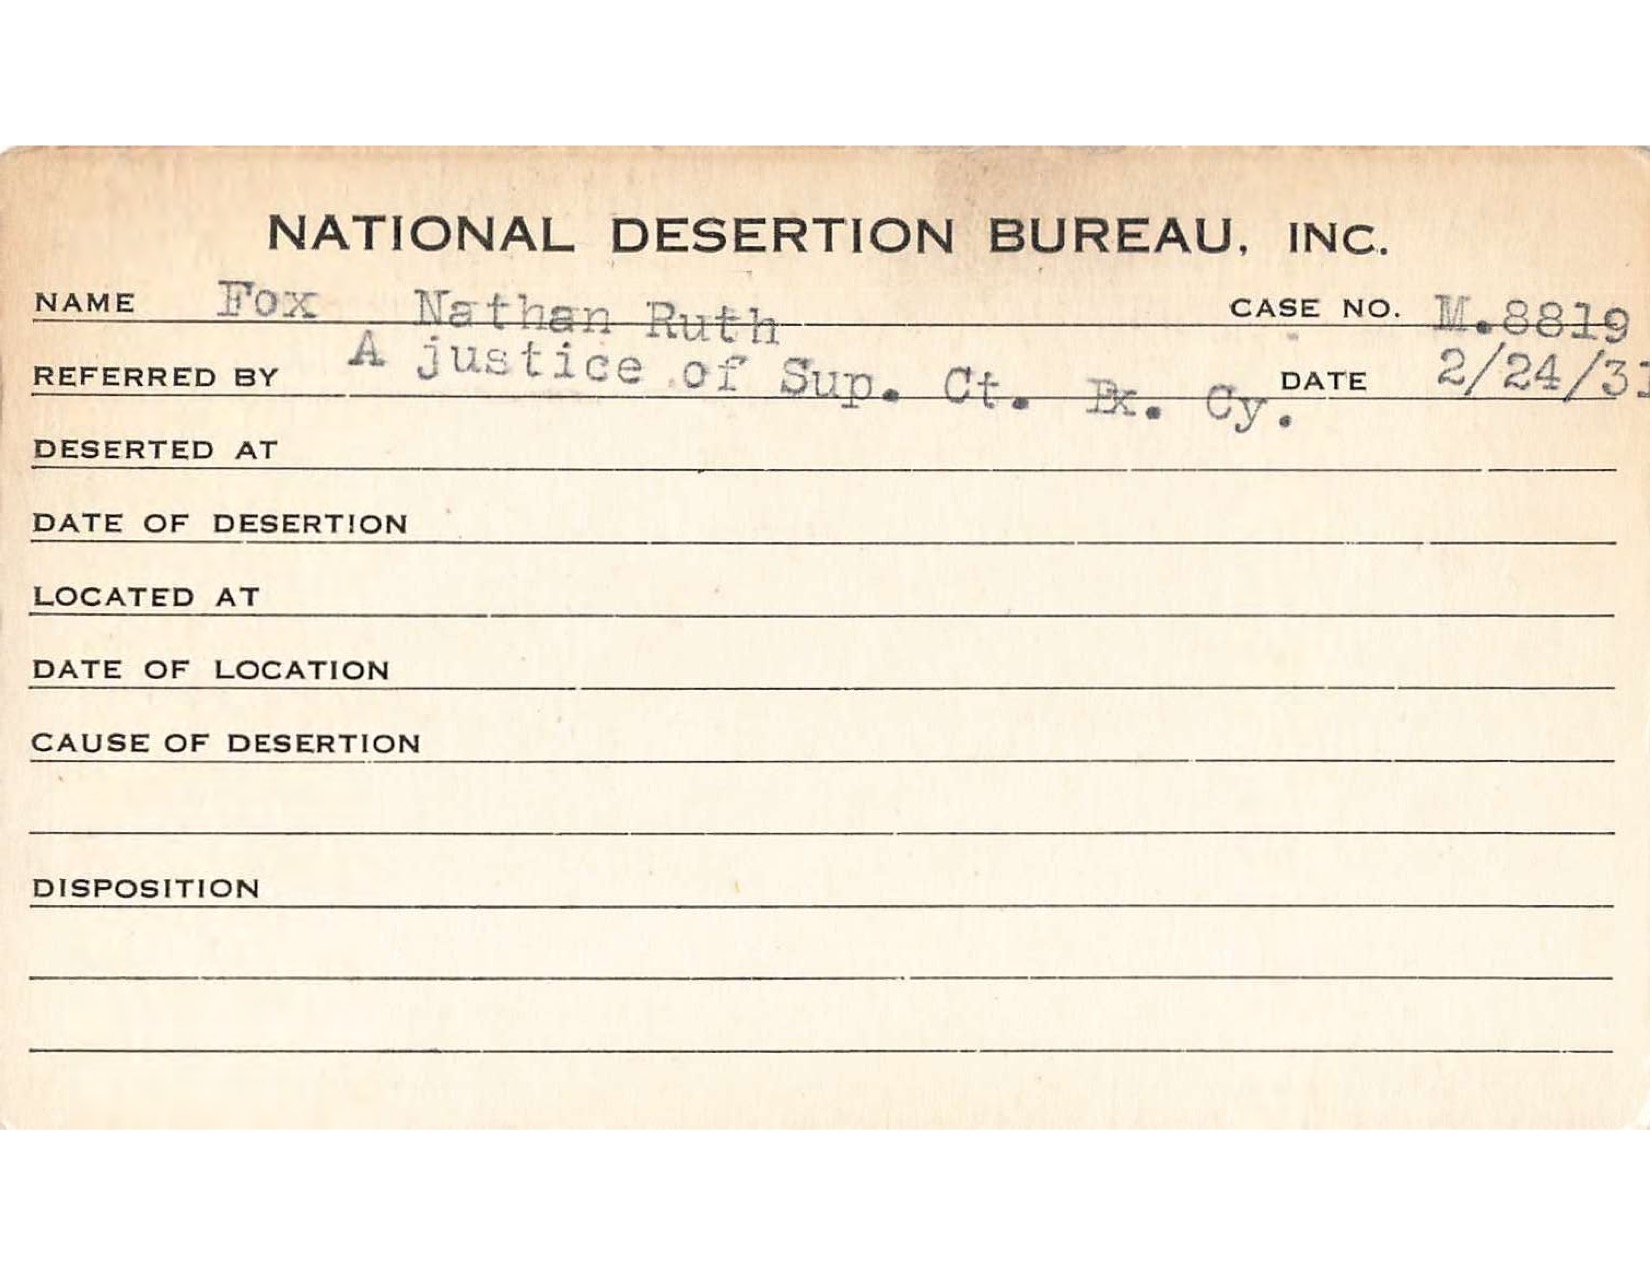 NATIONAL DESERTION BUREAU, INC.
NAME Fox Nathan Ruth CASE NO. M.8819
REFERRED BY A justice of Sup. Ct. Bx. Cy. DATE 2/24/31
DESERTED AT
DATE OF DESERTION
LOCATED AT
DATE OF LOCATION
CAUSE OF DESERTION
DISPOSITION